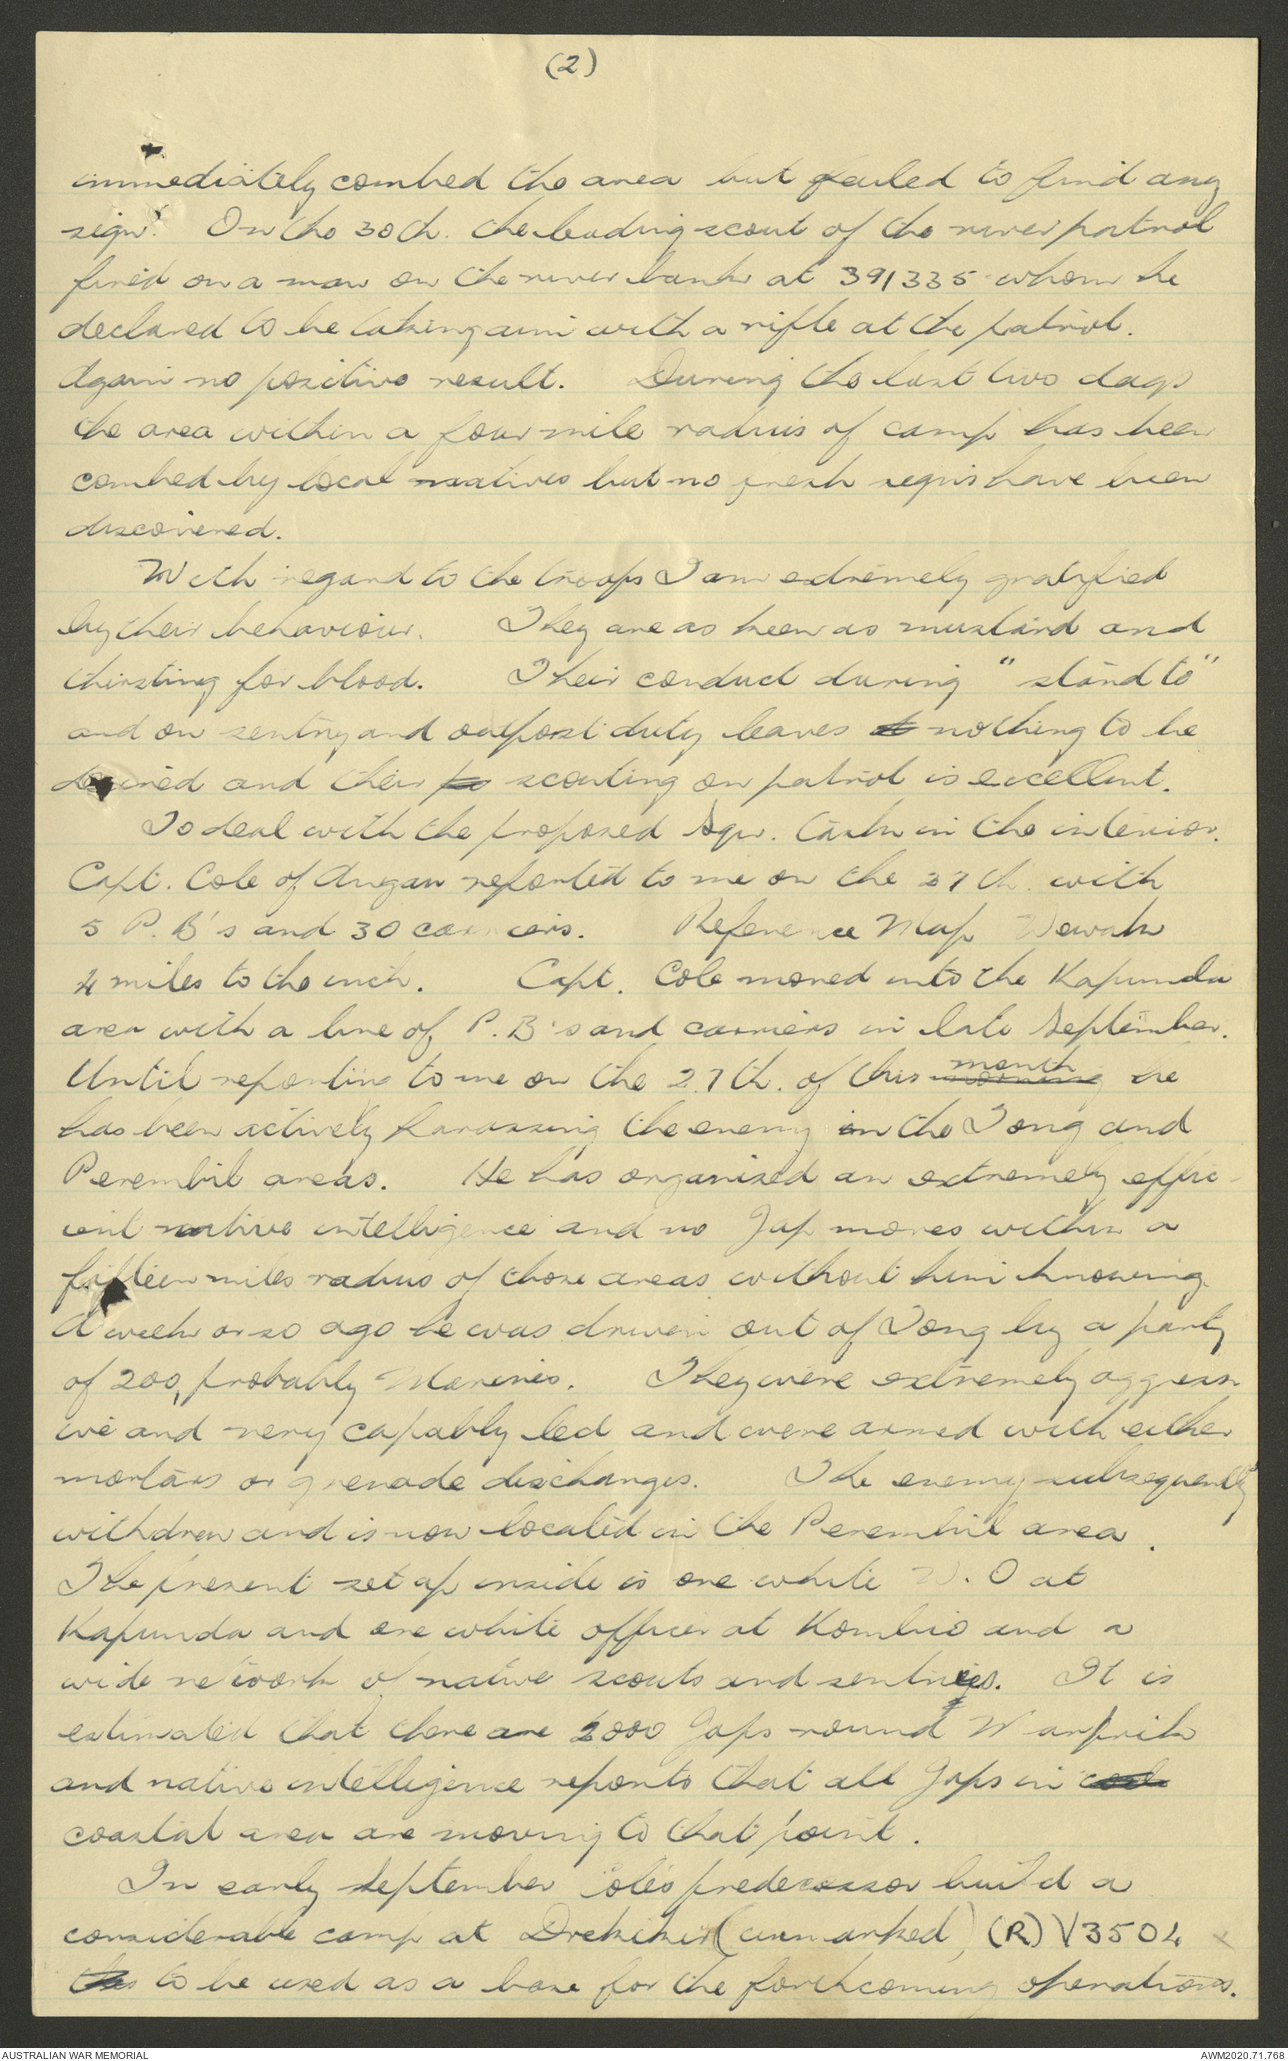 (2)
immediately combed the area but failed to find any
sign. On the 30th. the leading scout of the river patrol
fired on a man on the river bank at 391335 whom he
declared to be taking aim with a rifle at the patrol.
Again no positive result. During the last two days
the area within a four mile radius of camp has been
combed by local natives but no fresh signs have been
discovered.
With regard to the troops I am extremely gratified
by their behaviour. They are as keen as mustard and
thirsting for blood. Their conduct during "stand to"
and on sentry and outpost duty leaves nothing to be
desired and their scouting on patrol is excellent.
To deal with the proposed Sqn. task in the interior.
Capt. Cole of Angau reported to me on the 27th. with
5 P.B's and 30 carriers. Reference Map Wewak
4 miles to the inch. Capt. Cole moved into the Kapunda
area with a line of P.B's and carriers in late September.
Until reporting to me on the 27th. of this morning month he
has been actively harassing the enemy in the Tong and
Perembil areas. He has organised an extremely effic-
ient native intelligence and no Jap moves within a
fifteen miles radius of those areas without him knowing.
A week or so ago he was driven out of Tong by a party
of 200, probably Marines. They were extremely aggress-
ive and very capably led and were armed with either
mortars or grenade dischanges. The enemy subsequently
withdrew and is now located in the Perembil area.
The present set up inside is one white W.O at
Kapunda and one white officer at Kombio and a
wide network of native scouts and sentries. It is
estimated that there are 2000 Japs round Marprik
and native intelligence reports that all Japs in
coastal area are moving to that point.
In early September Cole's predecessor build a
considerable camp at Drekikir (unmarked) (R) V3504
to be used as a base for the forthcoming operations.
AUSTRALIAN WAR MEMORIAL
AWM2020.71.768